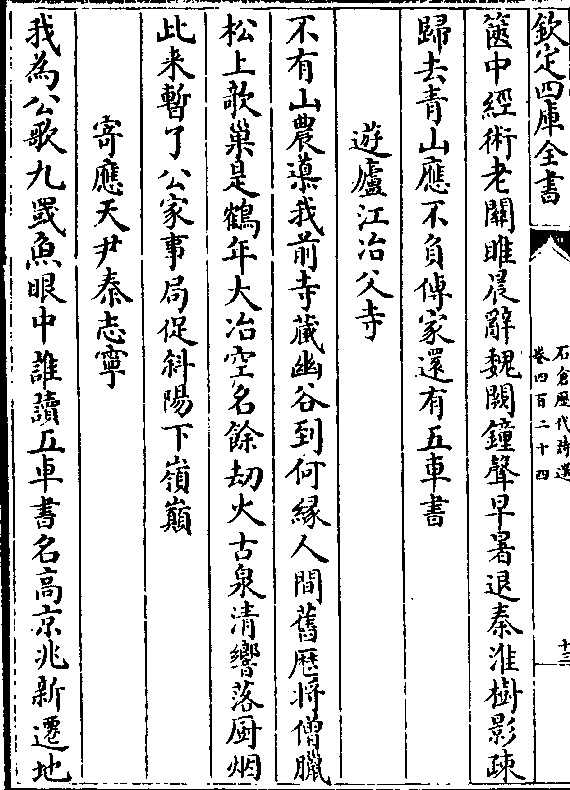 欽定四庫全書
石倉歷代詩選
卷四百二十四
十三
篋中經術老關雎晨辭魏闕鐘聲早署退秦淮樹影疎
歸去青山應不負傳家還有五車書
遊廬江冶父寺
不有山農導我前寺藏幽谷到何緣人間舊歴將僧臘
松上欹巢是鶴年大冶空名餘劫火古泉清響落厨烟
此来暫了公家事局促斜陽下嶺巔
寄應天尹秦志寧
我為公歌九罭魚眼中誰讀五車書名高京兆新遷地